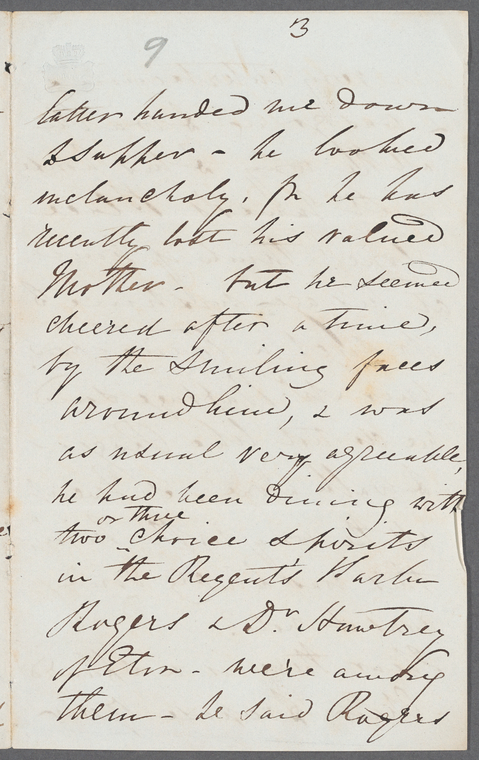 3
9
latter handed me down
to supper - he looked
melancholy, for he has
recently lost his valued
Mother - but he seemed
cheered after a time,
by the smiling faces
around him, & was
as usual very agreeable,
he had been dining with
or three
two choice spirits
in the Regent's Park
Rogers & Dr. Hawtrey
of Eton - were among
them - he said Rogers